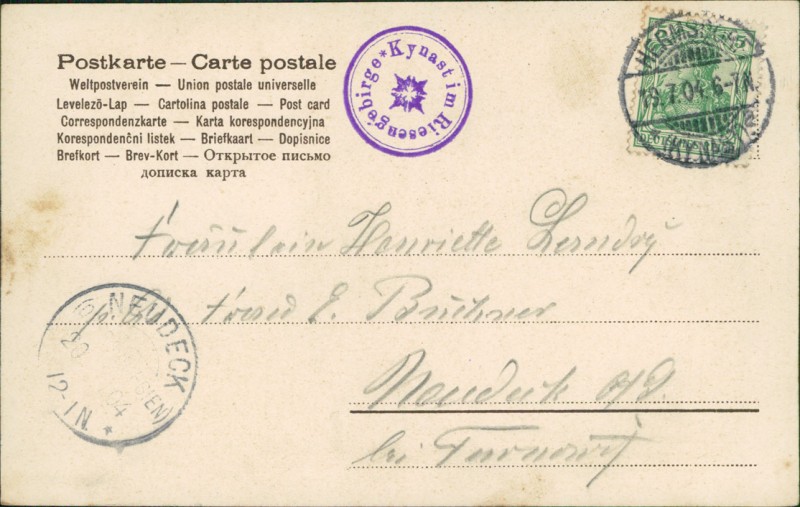 Postkarte — Carte postale
Weltpostverein — Union postale universelle
Levelező-Lap — Cartolina postale — Post card
Correspondenzkarte — Karta korespondencyjna
Korespondenční listek — Briefkaart — Dopisnice
Brefkort — Brev-Kort — Открытое письмо
дописка карта
*Kynast im Riesengebirge
19.7.04.6-7N.
(KYNAST)
Fräulein Henriette
Frau E. Büchner
Neudeck o/S.
bei Tarnowitz
NEUDECK
20
04
12-1N.
*